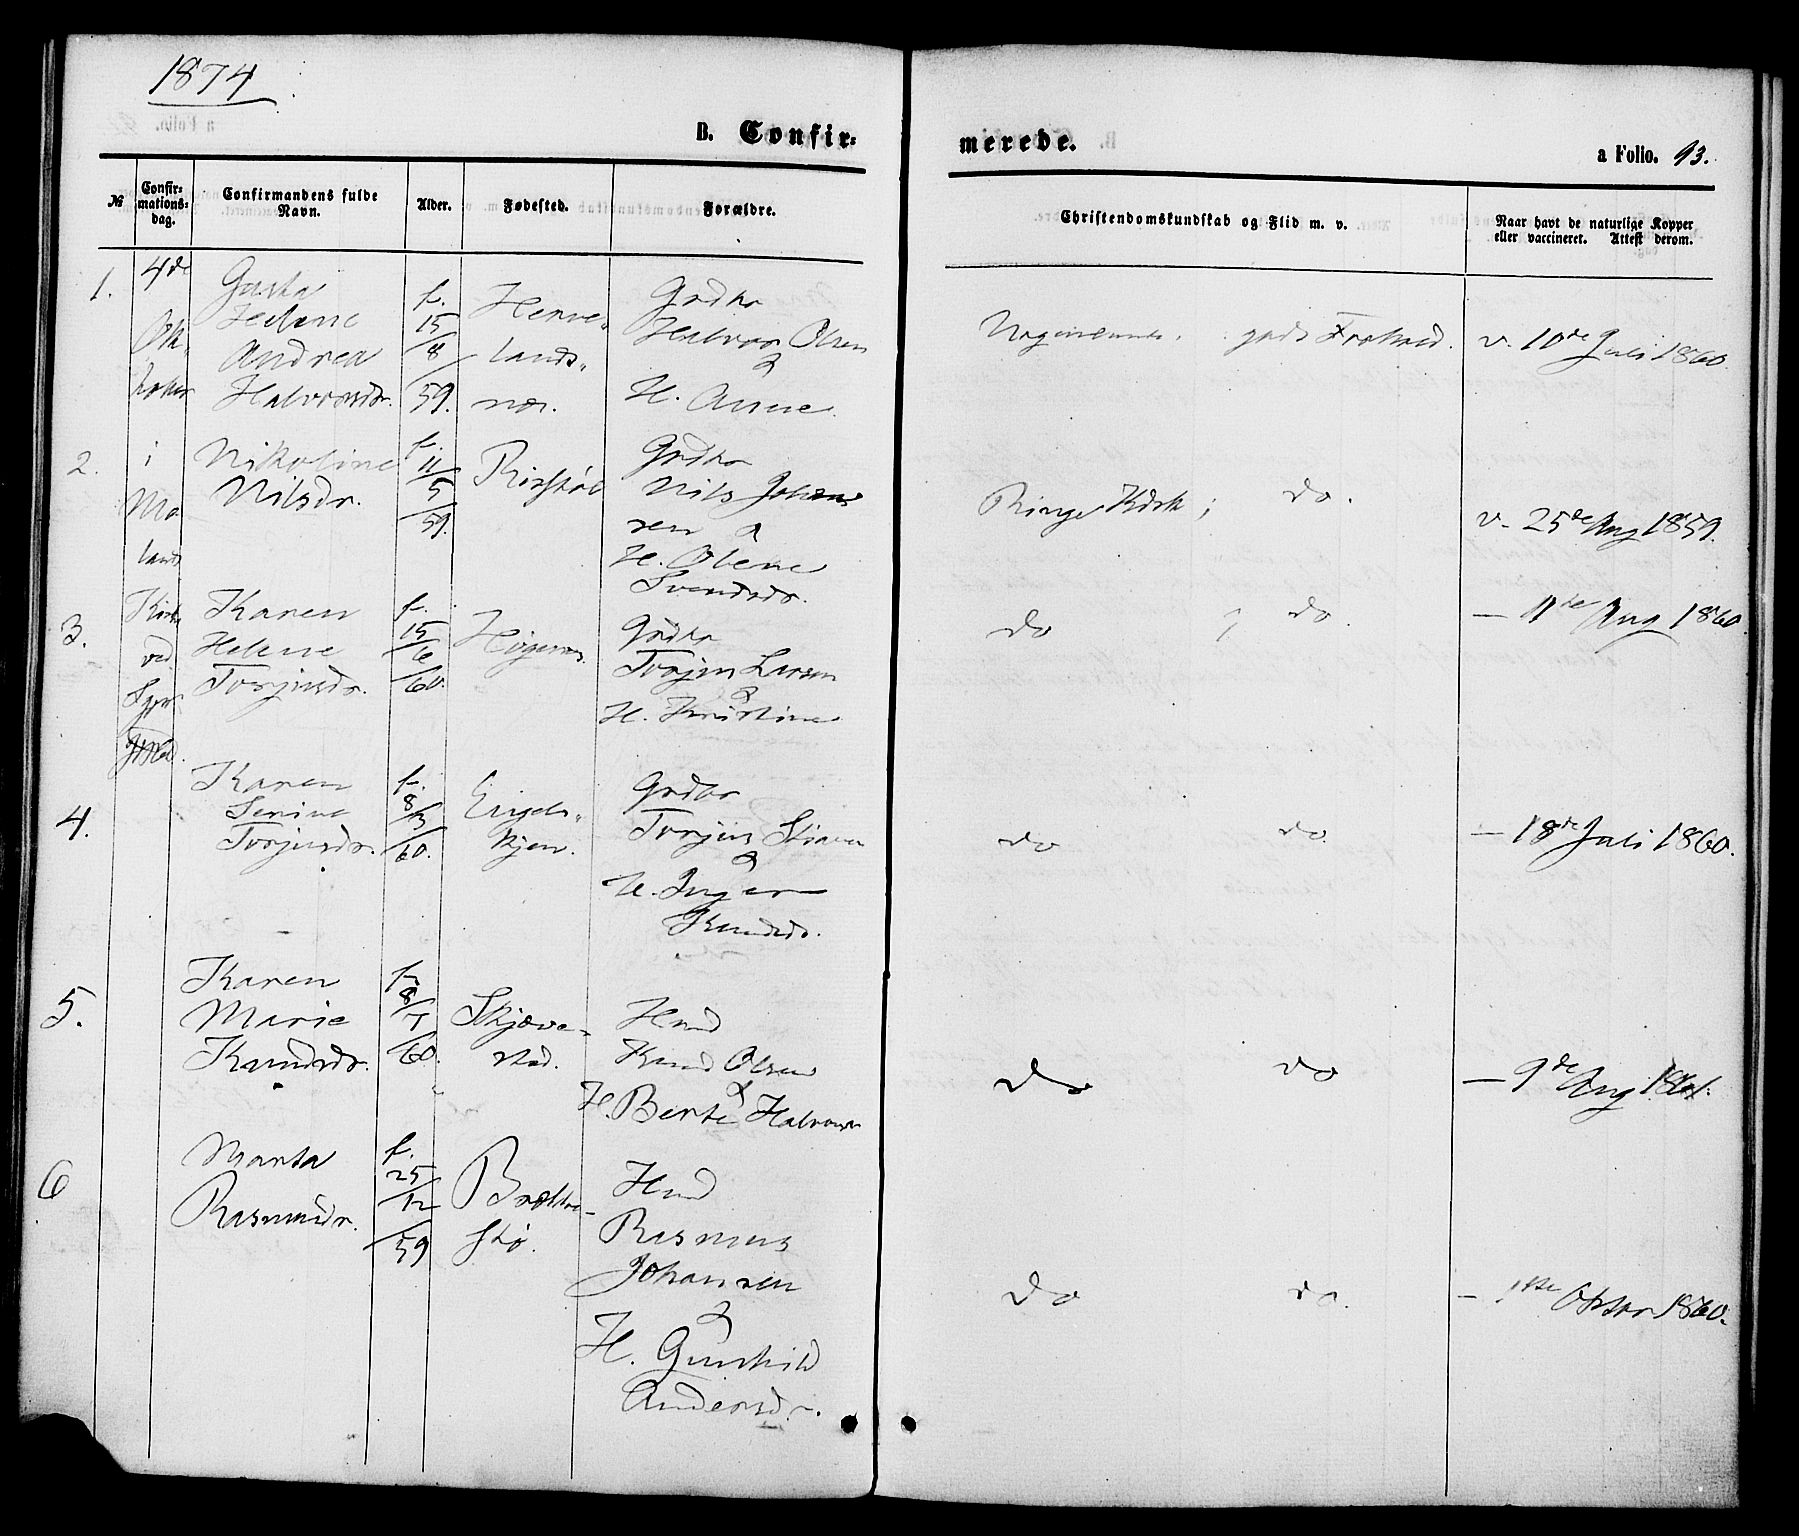 1874
B. Confir=
merede.
a Folio. 93.
№
Confir=
mations=
dag.
Confirmandens fulde
Navn.
Alder.
Fødested.
Forældre.
Christendomskundskab og Flid m. v.
Naar havt de naturlige Kopper
eller vaccineret. Attest derom.
4de
i
ved
1.
Helene
Andrea
Halvorsdr.
f.
15/
8/
59.
lands„
Halvor Olsen
&
H. Anne
Forhold.
v. 10de Juli 1860.
2.
Nikoline
Nilsdr.
f.
11/
5/
59.
Nils Johan
sen &
H. Olene
Svendsdr.
do.
v. 25de Aug 1859.
3.
Karen
Helene
Torjusdr.
f.
15/
6/
60.
Torjus Larsen
&
H. Kristine
do
do.
— 11de Aug 1860.
4.
Karen
Serine
Torjusdr.
f.
8/
3/
60.
Engels„
kjen.
Torjus
&
H. Inger
Knudsdr.
do
do.
— 18de Juli 1860.
5.
Karen
Marie
Knudsdr.
f.
8/
7/
60.
Skjæve„
stad.
Hmd
Knud Olsen
&
H. Berte Halvorsdr
do
do
— 9de Aug 1861.
6
Marta
Rasmusdr.
f.
25/
12
/59
Brække„
stø.
Hmd
Rasmus
Johansen
&
H. Gunhild
Andersdr.
do
do.
— 1ste Oktbr 1860.